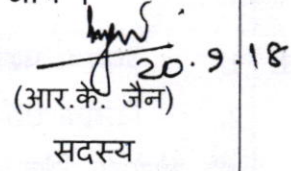 20.9.18
(आर.के. जैन)
सदस्य